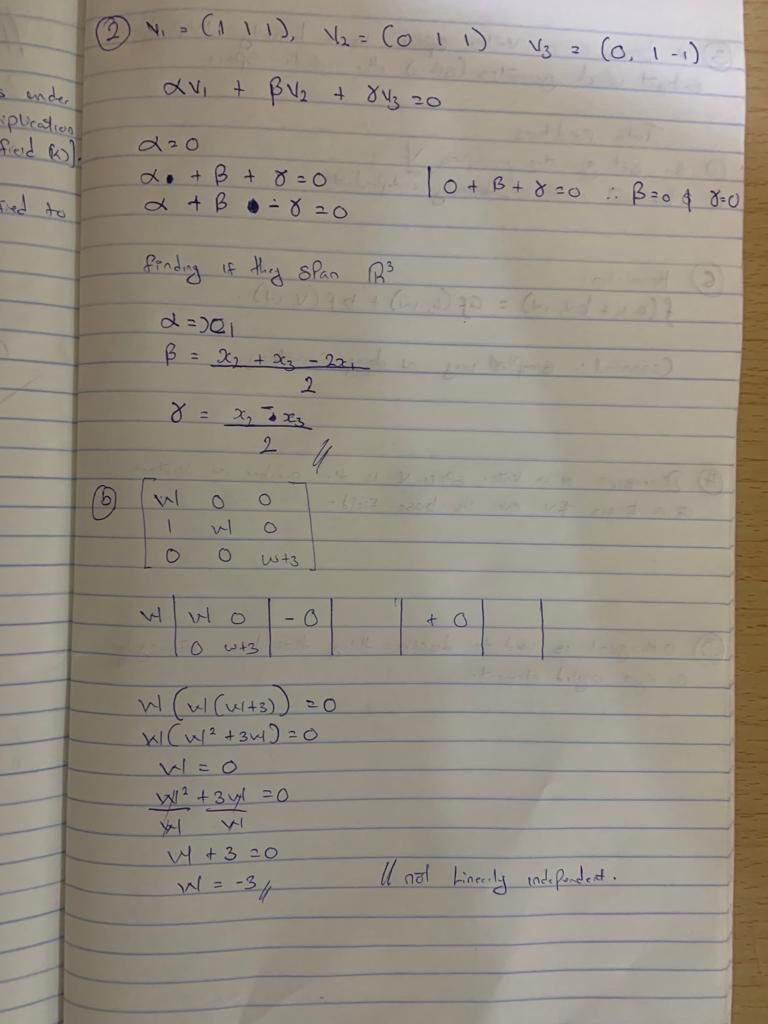 s under
iplication
field R)].
ied to
② v₁ = (1 1 1), v₂ = (0 1 1) v₃ = (0, 1 -1)
αv₁ + βv₂ + γv₃ = 0
α = 0
α + β + γ = 0 | 0 + β + γ = 0 ∴ β = 0 & γ = 0
α + β - γ = 0
finding if they span R³
α = x₁
β = x₂ + x₃ - 2x₁
2
γ = x₂ - x₃
2 //
ⓑ [W 0 0
1 W 0
0 0 w+3]
W | W 0 | - 0 | | + 0 | |
| 0 w+3 |
W(W(W+3)) = 0
W(W² + 3W) = 0
W = 0
W² + 3W = 0
W W
W + 3 = 0
W = -3 // // not linearly independent.